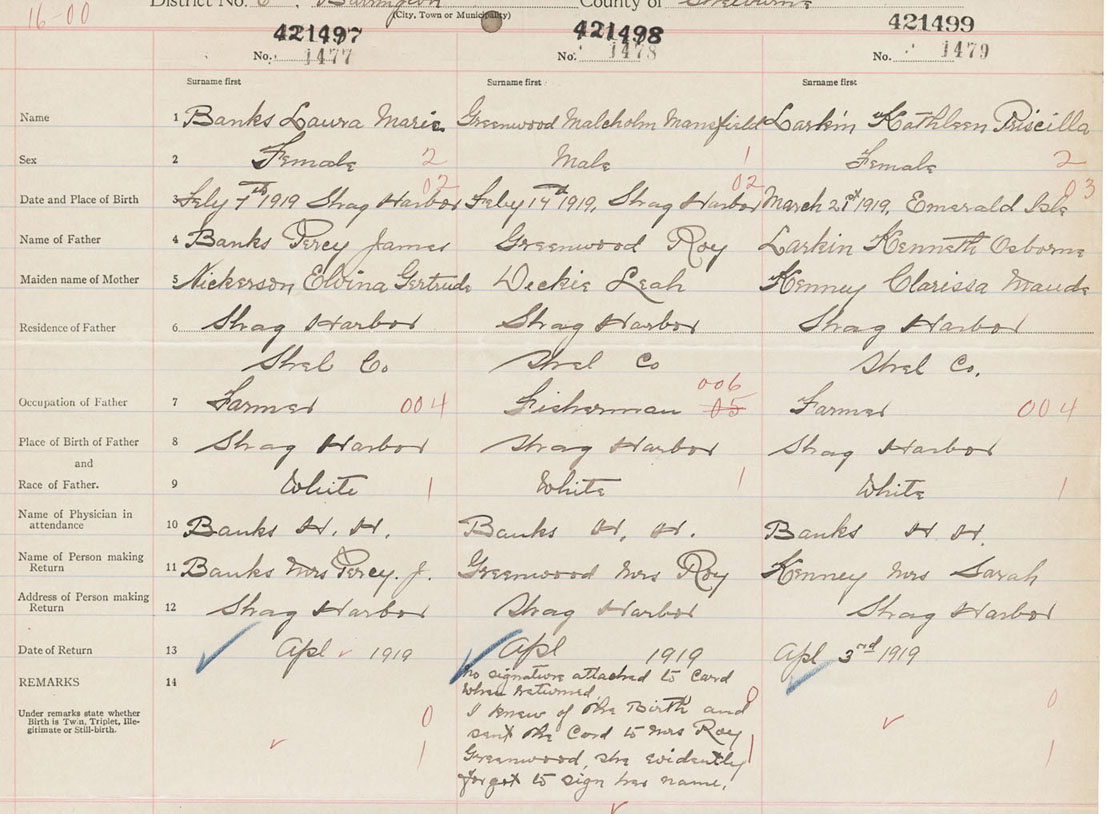 District No. 6, Barrington County of Shelburne
(City, Town or Municipality)
16-00
421497 421498 421499
No. 1477 No. 1478 No. 1479
Surname first Surname first Surname first
Name 1 Banks Laura Marie Greenwood Malcholm Mansfield Larkin Kathleen Priscilla
Sex 2 Female 2 Male 1 Female 2
02 02 03
Date and Place of Birth 3 Feby 7th 1919 Shag Harbor Feby 17th 1919, Shag Harbor March 21st 1919, Emerald Isle
Name of Father 4 Banks Percy James Greenwood Roy Larkin Kenneth Osborne
Maiden name of Mother 5 Nickerson Elvina Gertrude Leah Kenney Clarissa Maude
Residence of Father 6 Shag Harbor Shag Harbor Shag Harbor
Shel Co Shel Co Shel Co.
006
Occupation of Father 7 Farmer 004 Fisherman 05 Farmer 004
Place of Birth of Father 8 Shag Harbor Shag Harbor Shag Harbor
and
Race of Father. 9 White 1 White 1 White 1
Name of Physician in
attendance 10 Banks H. H. Banks H. H. Banks H H.
Name of Person making
Return 11 Banks Mrs Percy. J. Greenwood Mrs Roy Kenney Mrs Sarah
Address of Person making
Return 12 Shag Harbor Shag Harbor Shag Harbor
Date of Return 13 Apl 1919 Apl 1919 Apl 3rd 1919
REMARKS 14 No signature attached to Card
when returned, 0 0
Under remarks state whether
Birth is Twin, Triplet, Ille-
gitimate or Still-birth.
0 I knew of the Birth and
sent the Card to Mrs Roy
1 Greenwood, she evidently 1 1
forgot to sign her name.